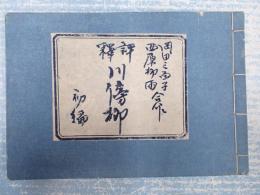 岡田三面子
西原柳雨 合作
評釈 川傍柳
初編